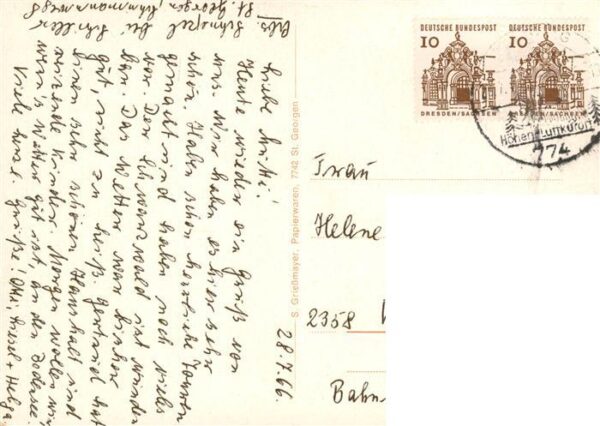 Abs. Schnozel bei Schiller
St. Georgen,
28.7.66
Liebe Mutti!
Heute wieder ein Gruß von
uns. Wir haben es hier sehr
schön. Haben schon herrliche Touren
gemacht und haben noch viele
vor. Der Schwarzwald ist wunder-
bar. Das Wetter war bisher
gut, nicht zu heiß. Gertrud hat
einen sehr schönen Haushalt und
reizende Kinder. Morgen wollen wir
wenn's Wetter gut ist an den Bodensee.
Viele herzl. Grüße! Otti, Liesel + Helga
S. Grießmayer, Papierwaren, 7742 St. Georgen
DEUTSCHE BUNDESPOST
10
DRESDEN/SACHSEN
DEUTSCHE BUNDESPOST
10
DRESDEN/SACHSEN
Höhenluftkurort
774
Frau
Helene
2358
Bahn-